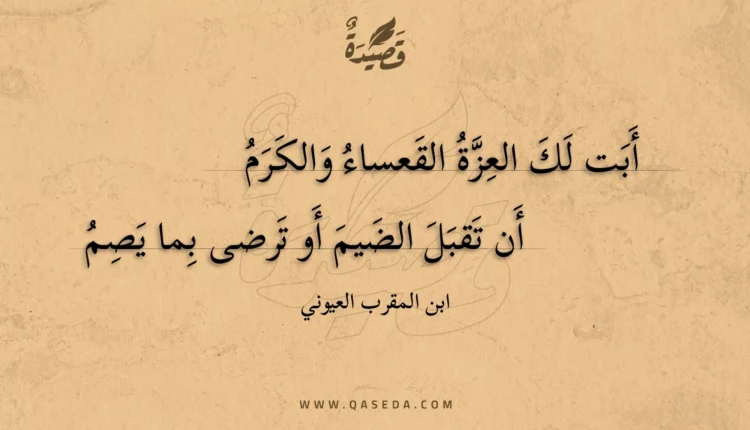 قَصِيْدَةٌ
أَبَت لَكَ العِزَّةُ القَعساءُ وَالكَرَمُ
أَن تَقبَلَ الضَيمَ أَو تَرضى بِما يَصِمُ
ابن المقرب العيوني
WWW.QASEDA.COM